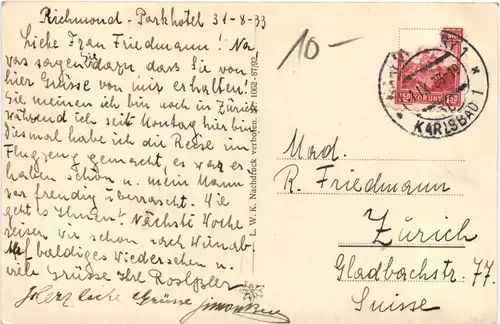 Richmond - Parkhotel 31-8-33
Liebe Frau Friedmann! Na
was sagen Sie dazu dass Sie von
hier Grüsse von mir erhalten!
Sie meinen ich bin noch in Zürich
während ich seit Montag hier bin
Diesmal habe ich die Reise im
Flugzeug gemacht, es war
haben schön u. mein Mann
war freudig überrascht. Wie
geht es Ihnen? Nächste Woche
reisen wir schon nach Wien ab
Auf baldiges Wiedersehen u.
viele Grüsse Ihre
Herzliche Grüsse
10-
L. W. K. Nachdruck verboten. 1002-8792
KORUNY
1.50 1.50
KARLSBAD 1
Mad.
R. Friedmann
Zürich
Gladbachstr. 77.
Suisse